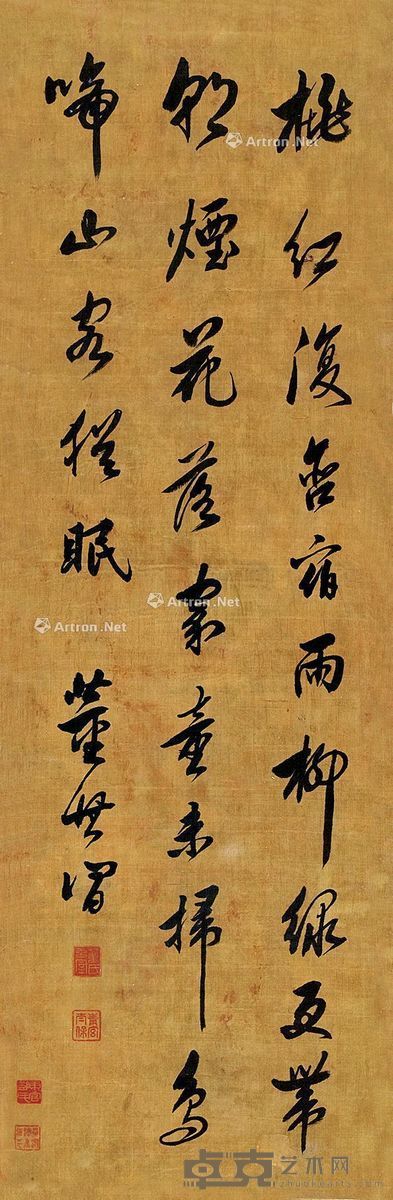 桃紅復含宿雨柳綠更帶
朝煙花落家童未掃鳥
啼山客猶眠 董
Artron.Net
Artron.Net
Artron.Net
卓克艺术网